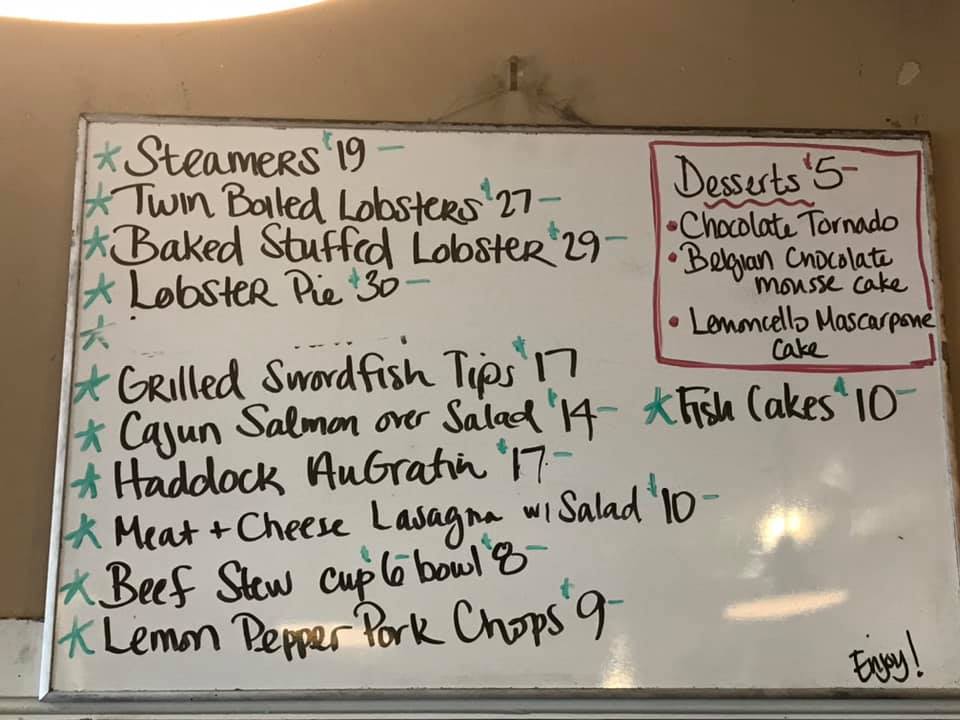 * Steamers $19 -
* Twin Boiled Lobsters $27 -
* Baked Stuffed Lobster $29 -
* Lobster Pie $30 -
*
* Grilled Swordfish Tips $17
* Cajun Salmon over Salad $14 -
* Haddock AuGratin $17 -
* Meat + Cheese Lasagna w/ Salad $10 -
* Beef Stew cup $6 - bowl $8 -
* Lemon Pepper Pork Chops $9 -
Desserts $5 -
• Chocolate Tornado
• Belgian Chocolate
mousse cake
• Lemoncello Mascarpone
Cake
* Fish Cakes $10 -
Enjoy!